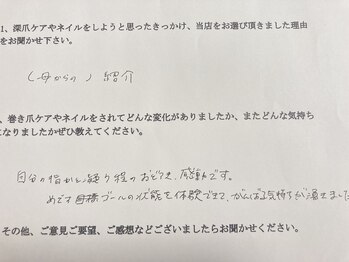 1、深爪ケアやネイルをしようと思ったきっかけ、当店をお選び頂きました理由
をお聞かせ下さい。
(母からの) 紹介
、巻き爪ケアやネイルをされてどんな変化がありましたか、またどんな気持ち
になりましたかぜひ教えてください。
自分の指かと疑う程のおどろき、感動です。
めざす目標ゴールの状態を体験できて、がんばる気持ちが湧きました
その他、ご意見ご要望、ご感想などございましたらお聞かせください。